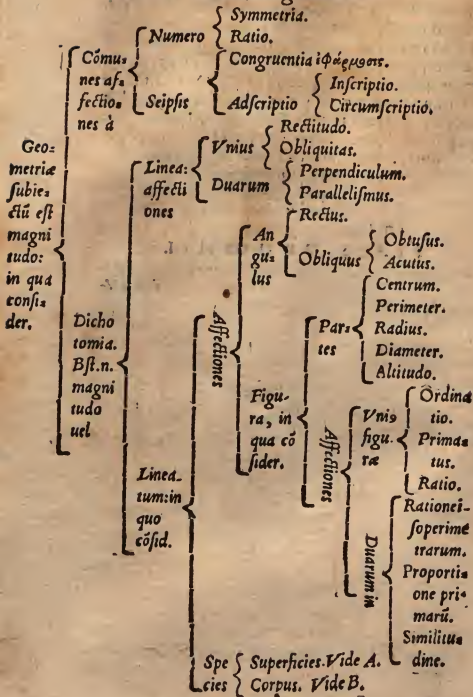 Geo=
metriæ
subie=
ctū est
magni
tudo:
in qua
consi=
der.
Cōmu=
nes af=
fectio=
nes à
Numero
Symmetria.
Ratio.
Seipsis
Congruentia ἐφάρμοσις.
Adscriptio
Inscriptio.
Circumscriptio.
Dicho
tomia.
Est.n.
magni
tudo
uel
Linea:
affecti
ones
Vnius
Rectitudo.
Obliquitas.
Duarum
Perpendiculum.
Parallelismus.
Linea=
tum:in
quo
cōsid.
Affectiones
An
gu=
lus
Rectus.
Obliquus
Obtusus.
Acutus.
Figu=
ra, in
qua cō
sider.
Par=
tes
Centrum.
Perimeter.
Radius.
Diameter.
Altitudo.
Affectiones
Vni9
figu=
ræ
Ordina
tio.
Prima=
tus.
Ratio.
Duarum in
Rationei=
soperime
trarum.
Proporti=
one pri=
marū.
Similitu=
dine.
Spe
cies
Superficies.Vide A.
Corpus. Vide B.